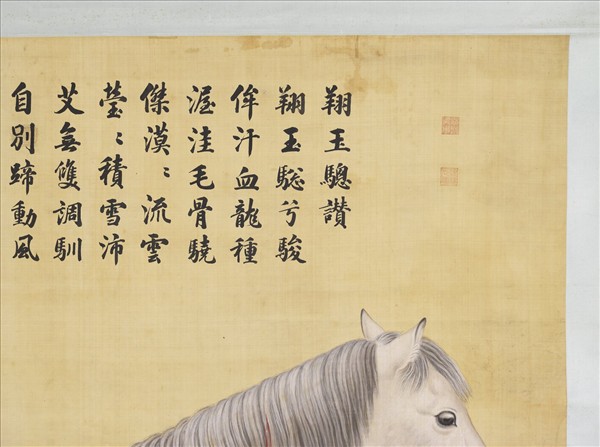 翔玉驄讚
翔玉駹兮駿
侔汗血龍種
渥洼毛骨驍
傑漠〻流雲
瑩〻積雪沛
艾無雙調馴
自別蹄動風